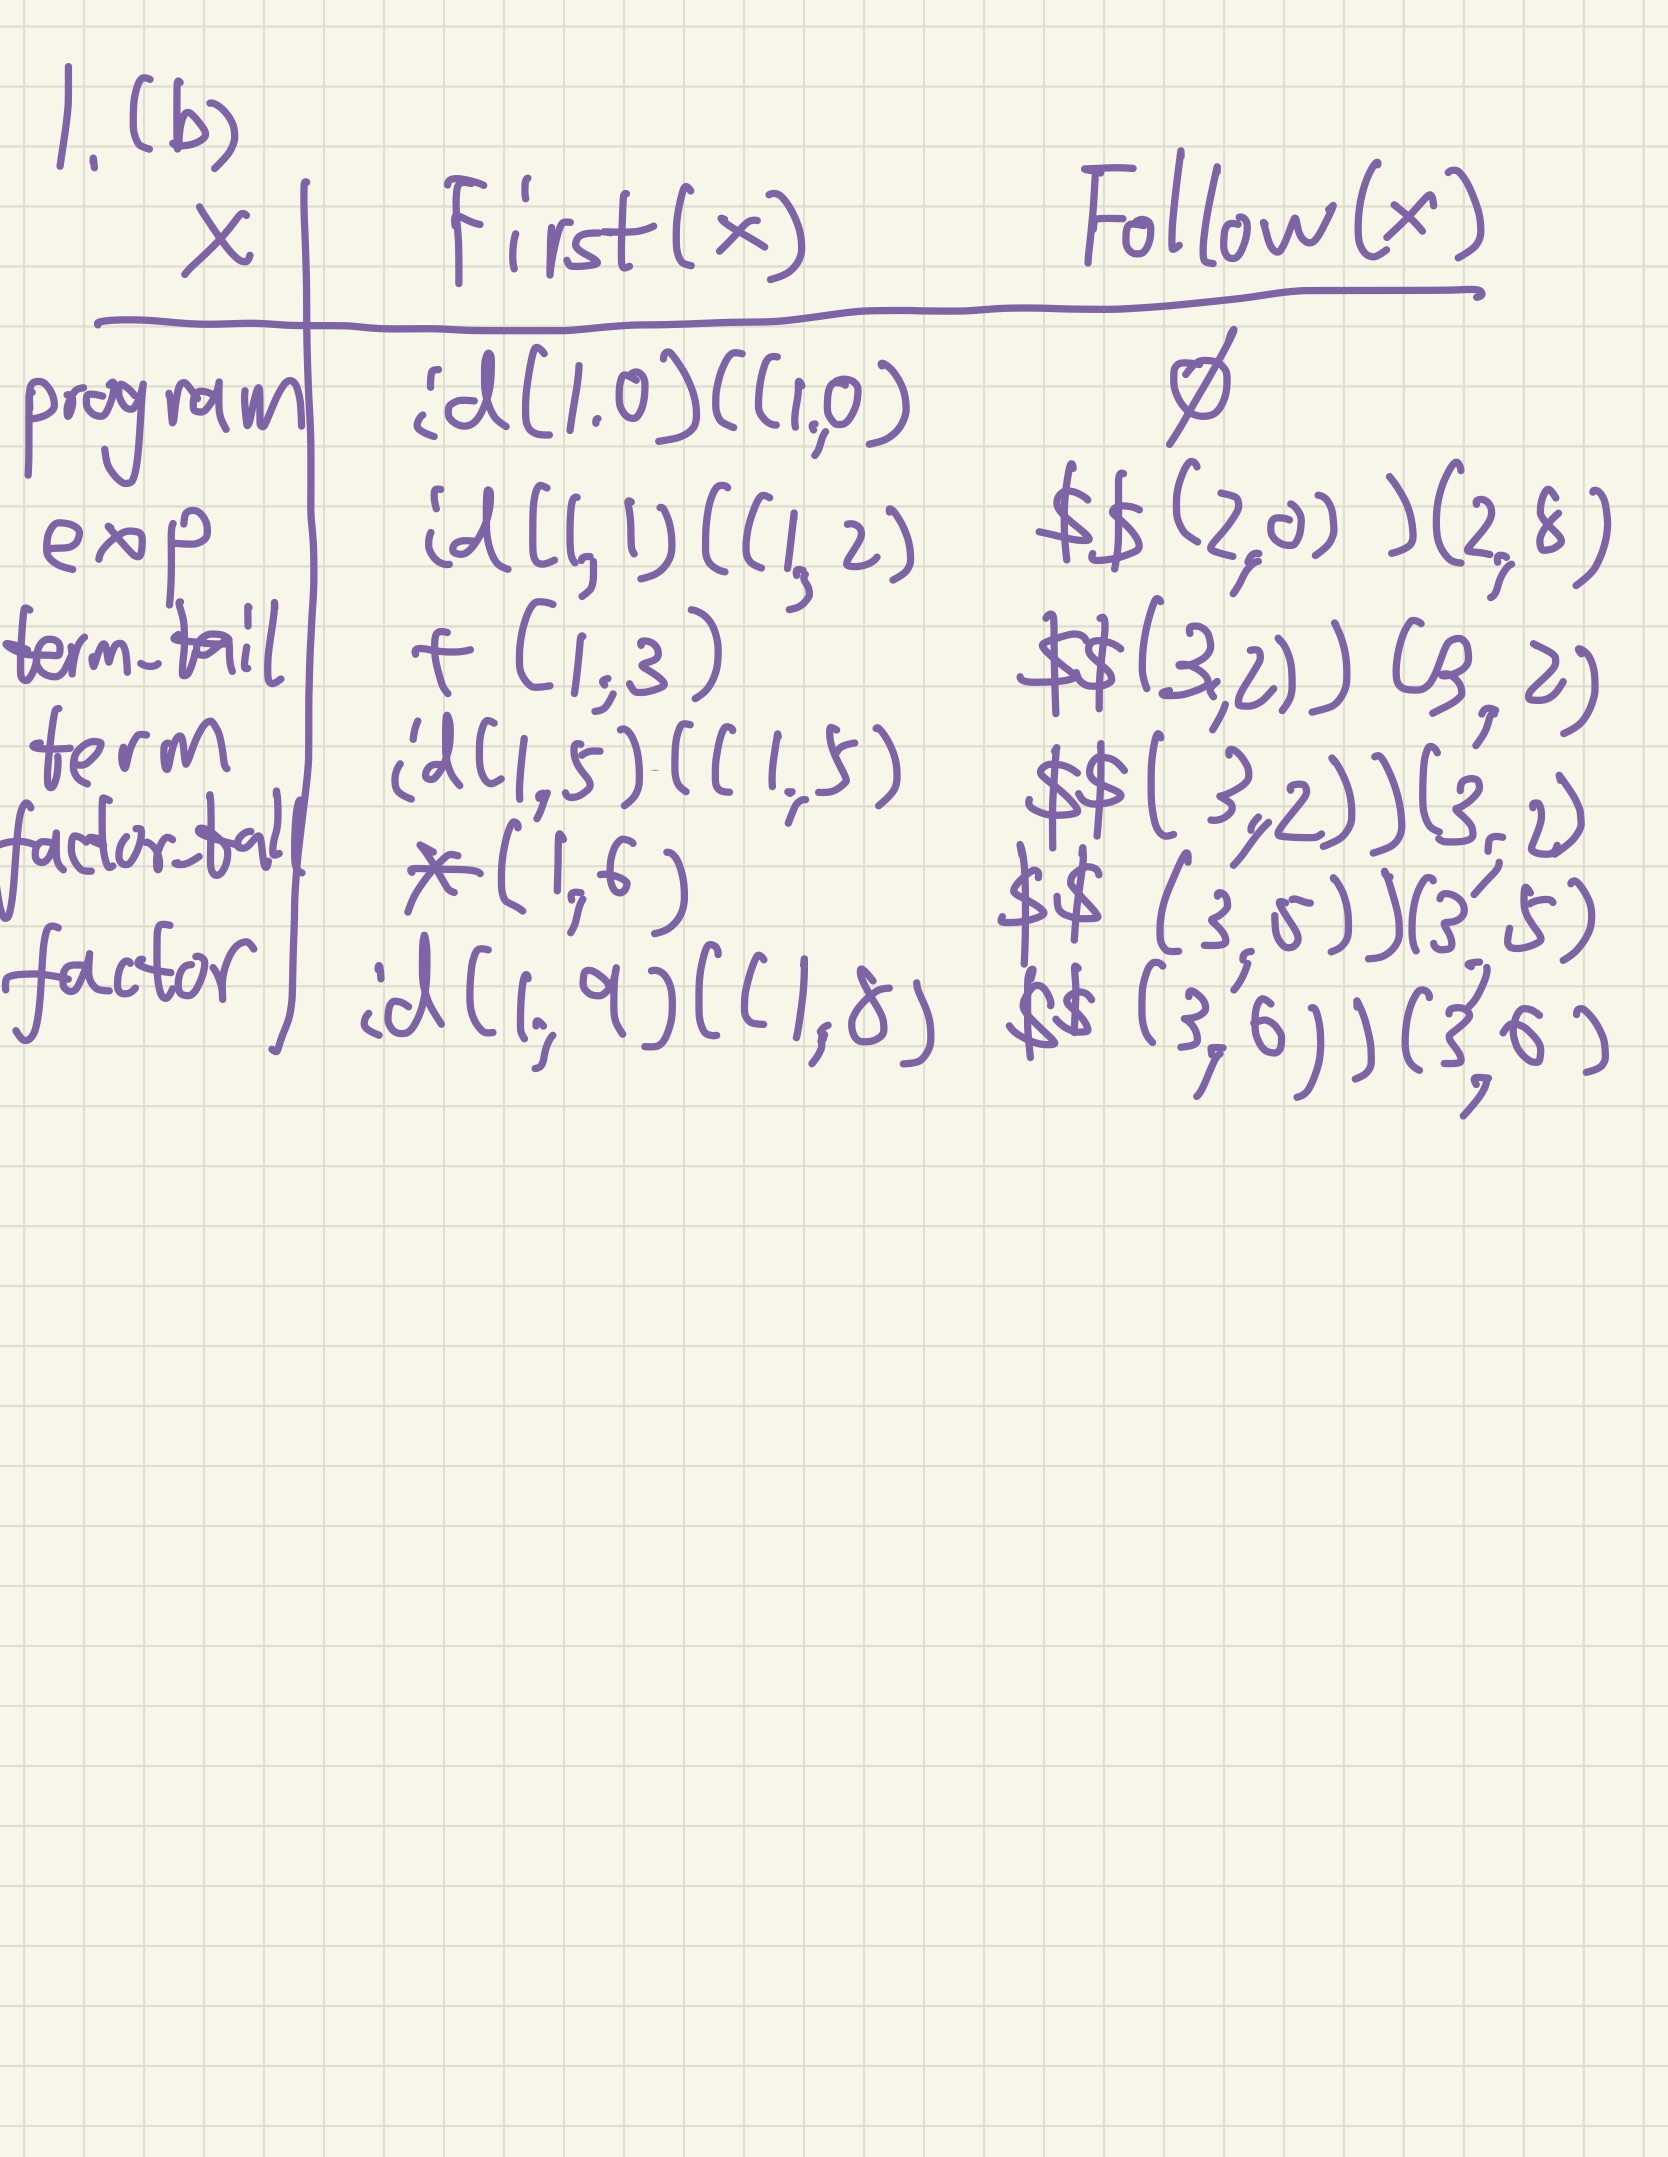 1. (b)
x First(x) Follow(x)
program id(1.0)((1,0) ∅
exp id(1,1)((1,2) $$(2,0))(2,8)
term_tail +(1,3) $$(3,2))(3,2)
term id(1,5)((1,5) $$(3,2))(3,2)
factor_tail *(1,6) $$(3,5))(3,5)
factor id(1,9)((1,8) $$(3,6))(3,6)